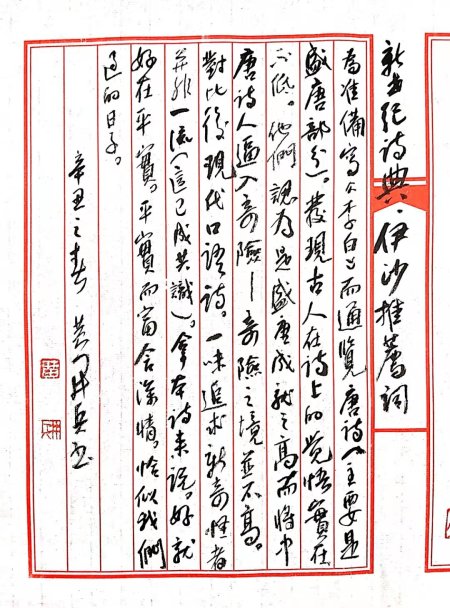 新世紀詩典·伊沙推薦詞
為准備寫《李白》而通覽唐詩（主要是
盛唐部分）。發現古人在詩上的觉悟實在
不低。他們認為是盛唐成就之高而將中
唐詩人逼入奇險—奇險之境並不高。
對比後現代口語詩。一味追求新奇怪者
并非一流（這已成共識）。拿本詩来説。好就
好在平實。平實而富含深情。恰似我們
过的日子。
辛丑之春 黄开兵书